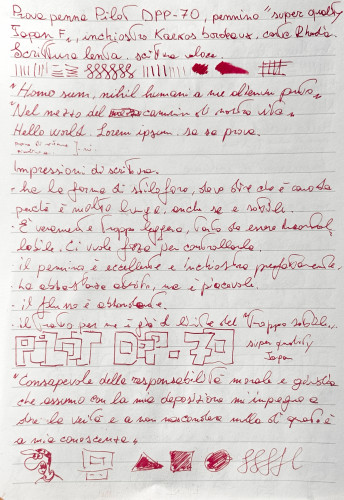 Prova penna Pilot DPP-70, pennino "super quality
Japan F", inchiostro Kaweco bordeaux, carta Rhodia
Scrittura lenta, scrittura veloce.
"Homo sum, nihil humani a me alienum puto"
"Nel mezzo del cammin di nostra vita"
Hello world. Lorem ipsum. sa sa prova.
Impressioni di scrittura.
- ha la forma di stilo, devo dire che è comoda
perché è molto lunga, anche se è sottile.
- È veramente troppo leggera, tanto da essere
Ci vuole forza per controllarla.
- il pennino è eccellente e inchiostra perfettamente.
- Ha abbastanza attrito, ma è piacevole.
- il flusso è abbondante.
- il tratto per me è già al limite del "troppo sottile".
PILOT DPP-70
super quality
Japan
"Consapevole della responsabilità morale e giuridica
che assumo con la mia deposizione mi impegno a
dire la verità e a non nascondere nulla di quanto è
a mia conoscenza"